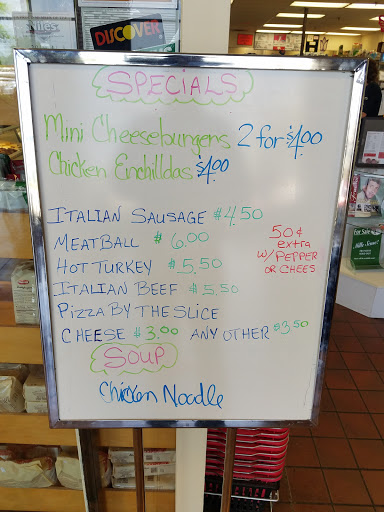 DISCOVER
SPECIALS
Mini Cheeseburgers 2 for $1.00
Chicken Enchilldas $1.00
ITALIAN SAUSAGE $4.50
MEATBALL $6.00
HOT TURKEY $5.50
ITALIAN BEEF $5.50
PIZZA BY THE SLICE
CHEESE $3.00 ANY OTHER $3.50
50¢
extra
W/PEPPER
OR CHEES
SOUP
Chicken Noodle
For Sale